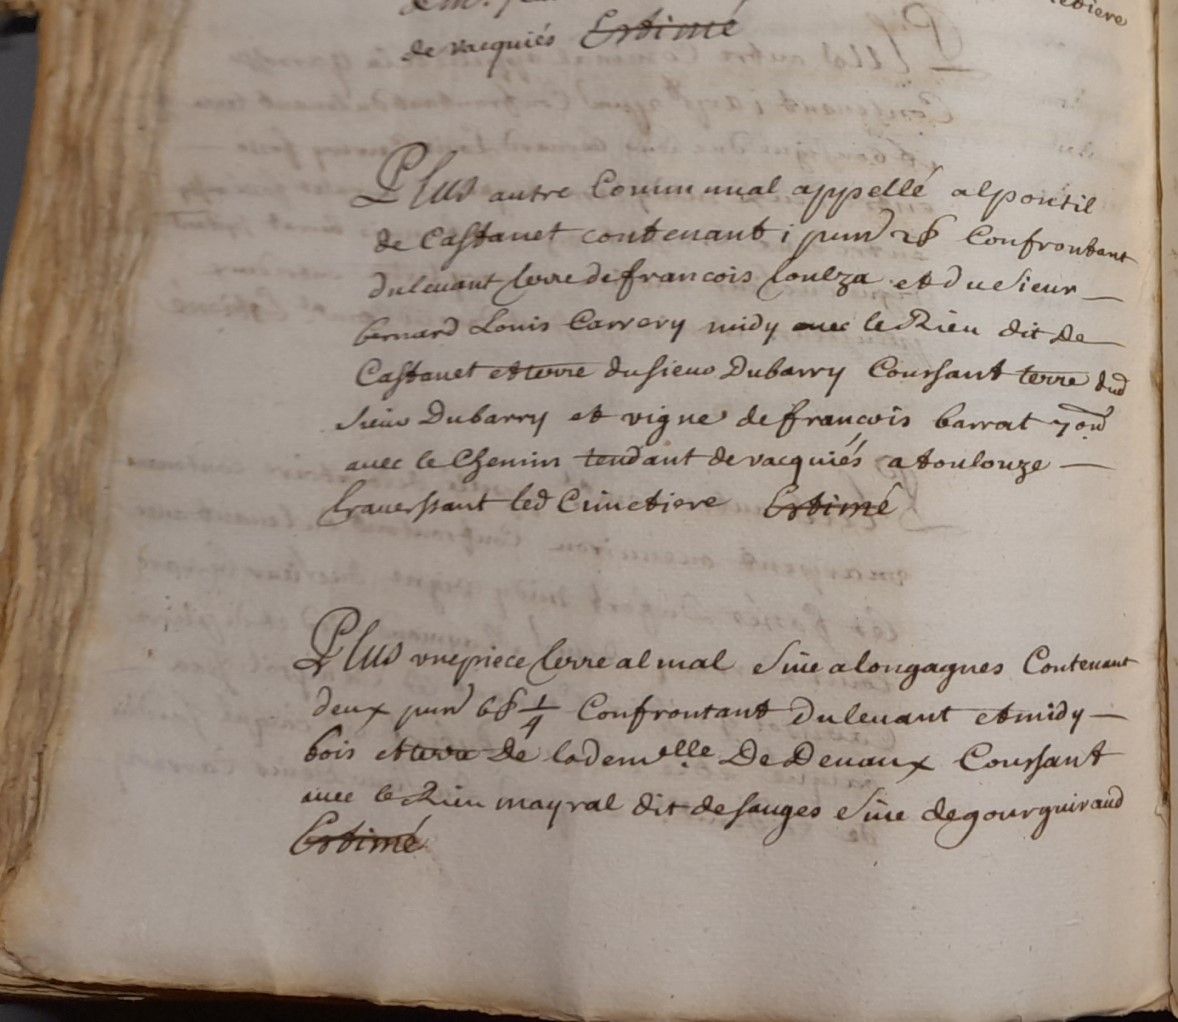 de vacquiés Estimé
Plus autre Communal appellé alpontil
de Castanet contenant 1 pun 2 b Confrontant
du levant terre de francois Coulza et du sieur
bernard Louis Carrery midy avec le Rieu dit de
Castanet et terre du sieur Dubarry Coursant terre dud
sieur Dubarry et vigne de francois barrat
avec le Chemin tendant de vacquiés a toulouze
traverssant led Cimetiere Estimé
Plus une piece terre al mal sive a longagnes Contenant
deux pun 6 b 1/4 Confrontant du levant et midy
bois et terre de lademelle De Devaux Coursant
avec le Rieu mayral dit de sauges sive de gourguiraud
Estimé